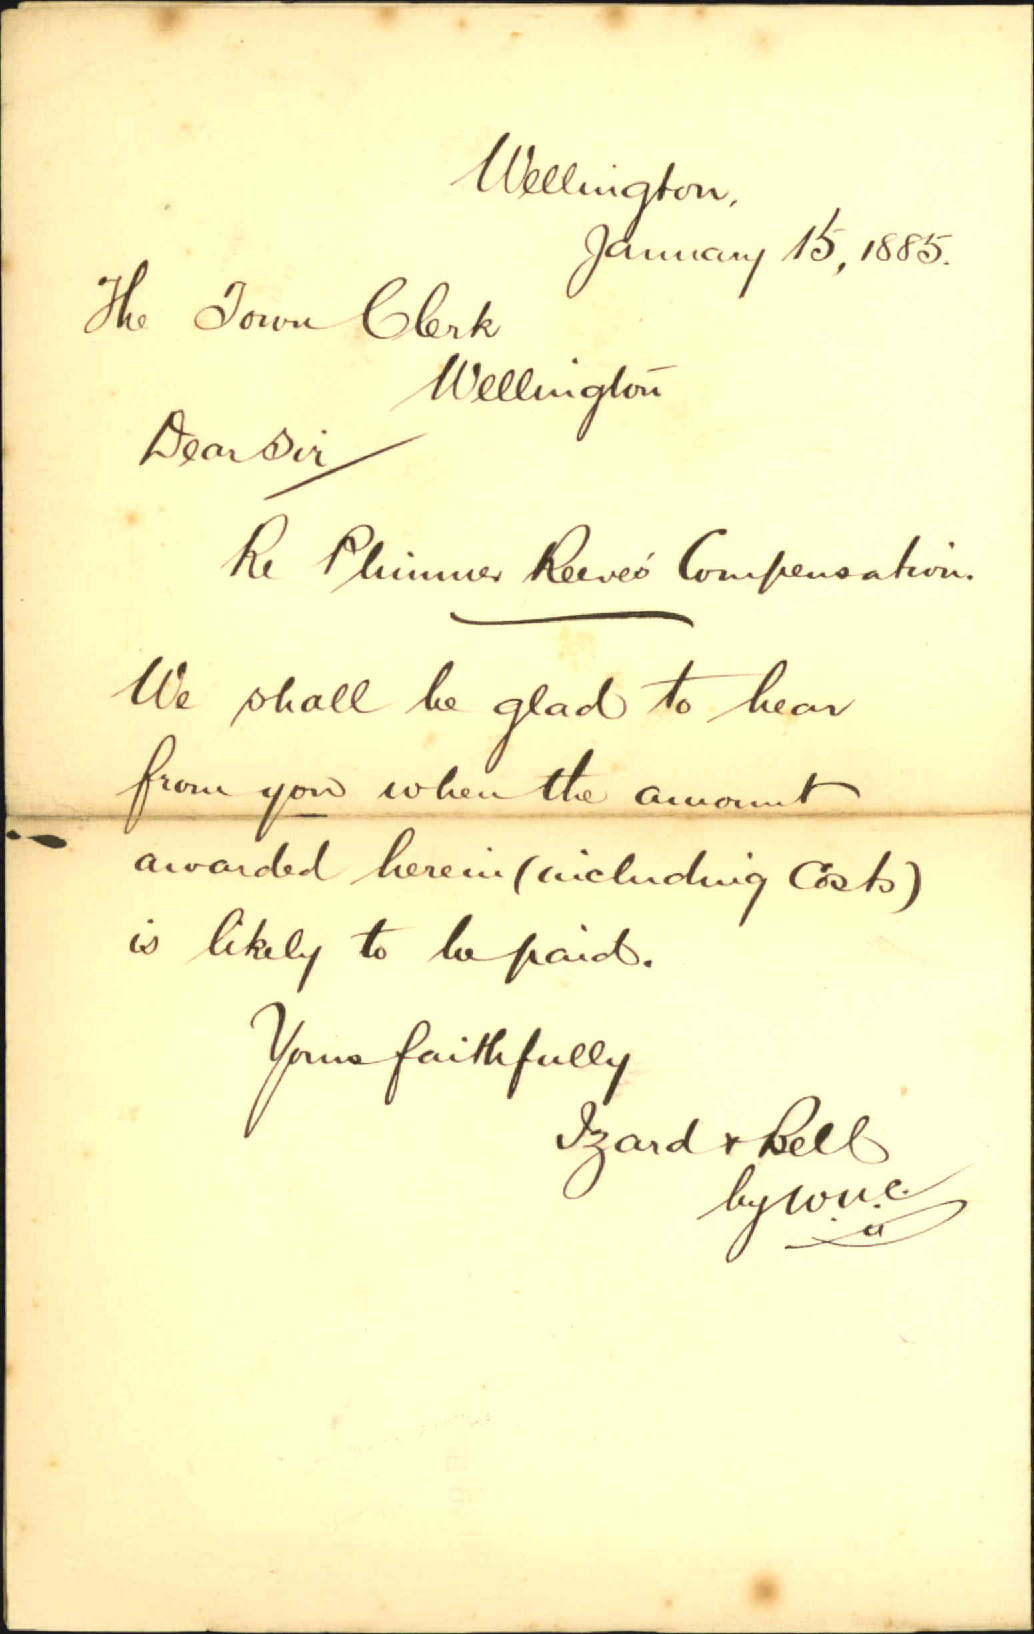 Wellington,
January 15, 1885.
The Town Clerk
Wellington
Dear Sir
Re Plimmer Reeve's Compensation.
We shall be glad to hear
from you when the amount
awarded herein (including Costs)
is likely to be paid.
Yours faithfully
Izard & Bell
by